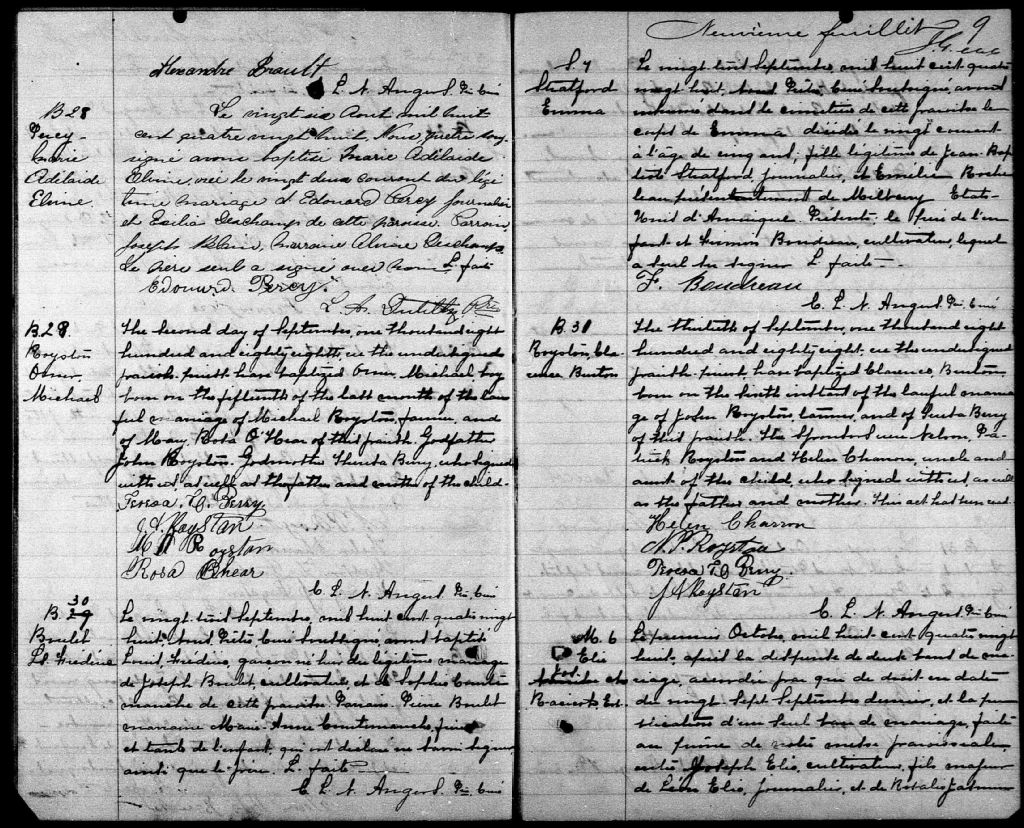 Alexandre Brault
C. L. N. Angers Ptre Curé
B 28
Percy
Marie
Adélaide
Elvine
Le vingt six Aout mil huit
cent quatre vingt huit Nous prêtre sous-
signé avons baptisé Marie Adélaide
Elvine, née le vingt deux courant du légi
time mariage d'Edouard Percy journalier
et Exilia Deschamps de cette paroisse. Parrain
Joseph marraine Deschamps.
Le père seul a signé avec nous. L. faite
Edouard Percy.
L. A. Ptre
B 29
Royston
Omer
Michael
The second day of September, one thousand eight
hundred and eighty eight, we the undersigned
parish priest have baptized Omer, Michael boy
born on the fifteenth of the last month of the law
ful marriage of Michael Royston, farmer, and
of Mary Rosa O'Hear of this parish. Godfather
John Royston. Godmother Theresa Berry, who signed
with us as well as the father and mother of the child.
Teresa L. G. Berry
J. A. Roystan
M A Roystan
Rosa Ohear
C. L. N. Angers Ptre Curé
30
B 29
Boulet
Ls
Le vingt trois Septembre, mil huit cent quatre vingt
huit, Nous Prêtre Curé soussigné, avons baptisé
Louis garçon né hier du légitime mariage
de Joseph Boulet cultivateur et de Sophie
de cette paroisse Parrain Pierre Boulet
marraine Marie Anne
et tante de l'enfant, qui ont déclaré ne savoir signer
ainsi que le père. L. faite
C. L. N. Angers Ptre Curé
Neuvième feuillet 9
S. 7
Stratford
Emma
Le vingt trois Septembre, mil huit cent quatre
vingt huit, Nous Prêtre Curé soussigné, avons
inhumé dans le cimetière de cette paroisse le
corps de Emma décédée le vingt courant
à l'âge de cinq ans, fille légitime de Jean Bap
tiste Stratford, journalier, et Emilien
de Etats-
Unis d'Amérique. Présents, le père de l'en
fant et Boudreau, cultivateur, lequel
a seul su signer L. faite
F. Boudreau
C. L. N. Angers Ptre Curé
B. 31
Royston, Cla
rence Burton
The thirtieth of September, one thousand eight
hundred and eighty eight, we the undersigned
parish priest have baptized Clarence, Burton
born on the sixth instant of the lawful marria
ge of John Royston, farmer, and of Berry
of this parish. The sponsors were Nelson, Pa
trick Royston and Helen Charron, uncle and
aunt of the child, who signed with us, as well
as the father and mother. This act has been read.
Helen Charron
N. P. Royston
Teresa L G Berry.
J A Roystan
C. L. N. Angers Ptre Curé
M. 6
Elie
Jos.
et
Le premier Octobre, mil huit cent quatre vingt
huit, après la dispense de deux bans de ma
riage, accordée par qui de droit en date
du vingt sept Septembre dernier, et la pu
blication d'un seul ban de mariage, faite
au prône de notre messe paroissiale,
entre Joseph Elie, cultivateur, fils majeur
de Léon Elie, journalier, et de Rosalie